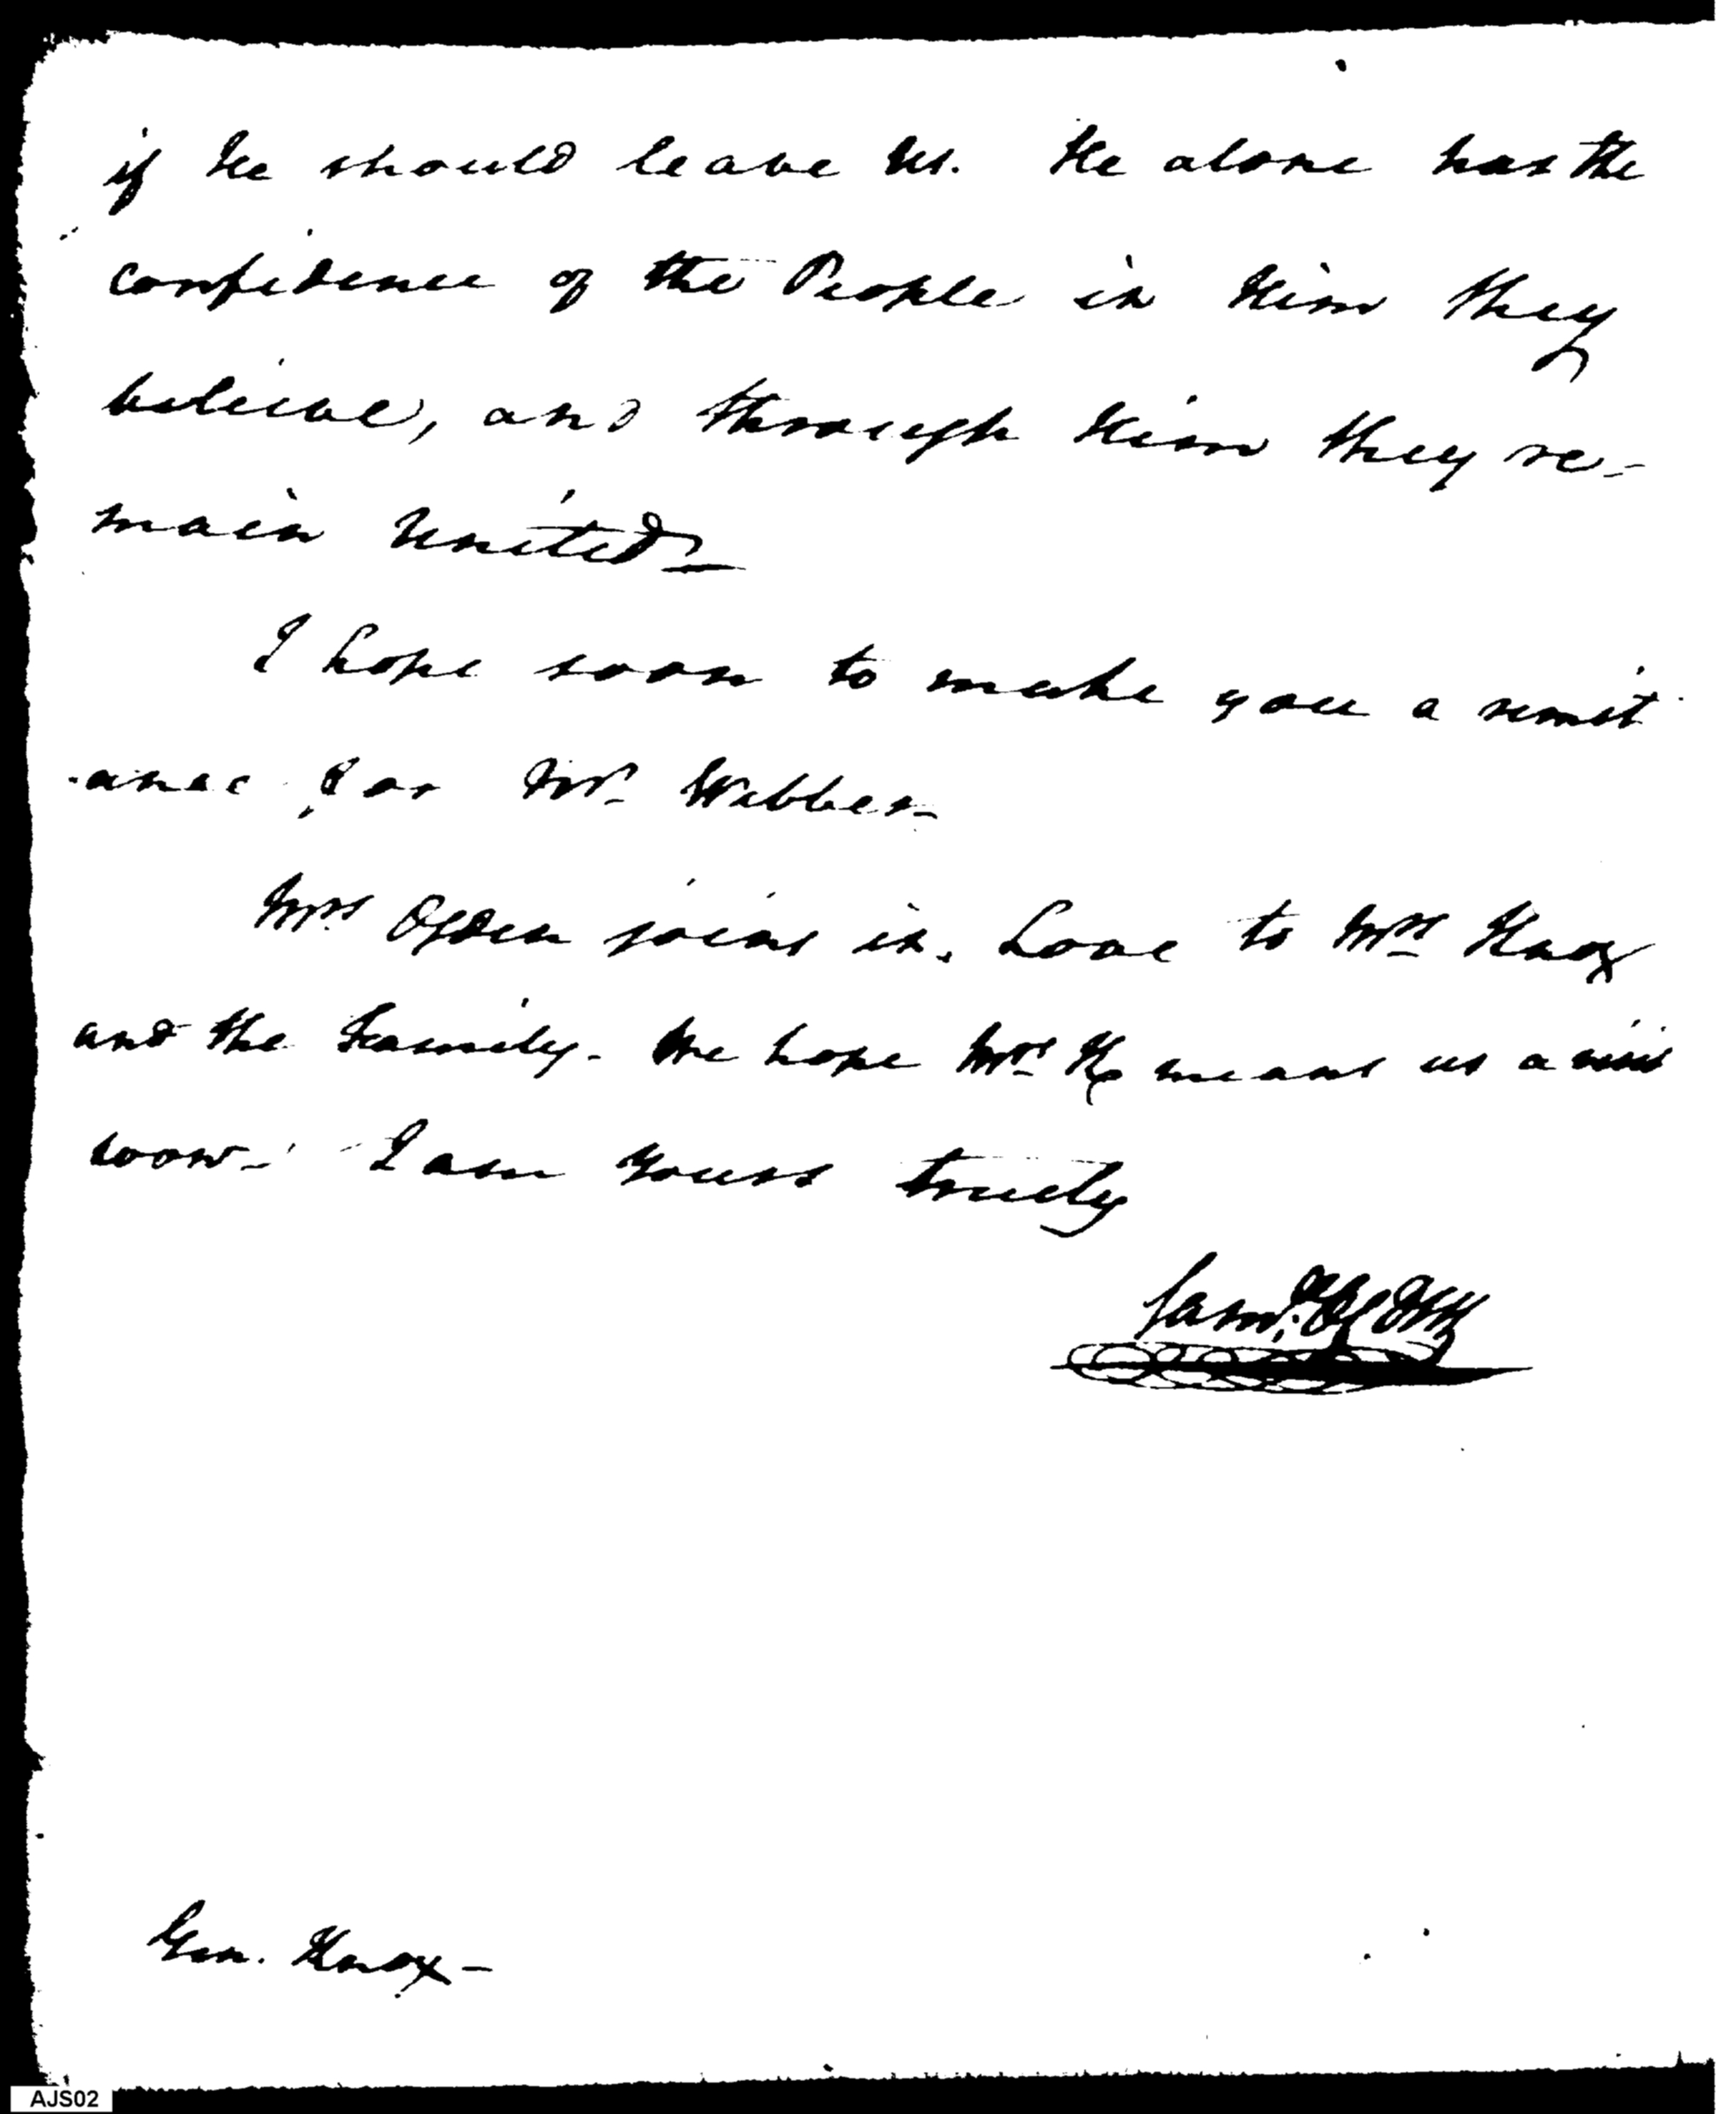 if he should leave us. He alone has the
confidence of the People in him they
believe, and through him they re-
main United—
I hope soon to make you a remit-
-ance for Mr. Webber—
Mrs Ogden joins in Love to Mrs Knox
and the Family. We hope Mrs K means us a visit
soon— I am Yours truly
Sam.
Gen. Knox—
AJS02